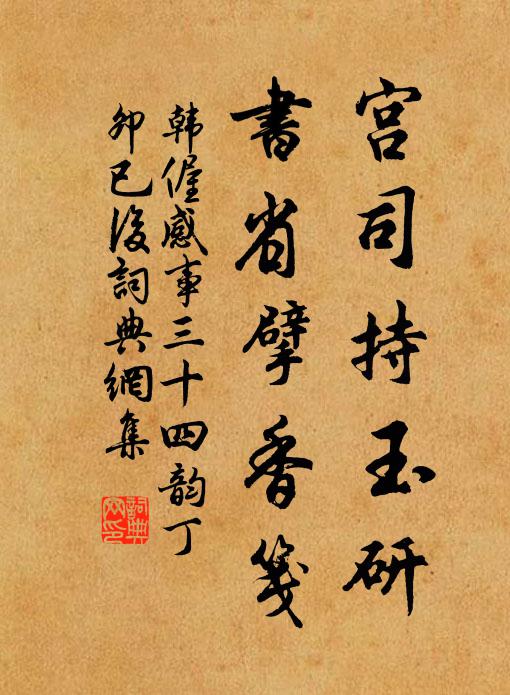 宫司持玉研
書省擘香箋
韩偓感事三十四韵丁
卯已後詞典網集
詞典網印